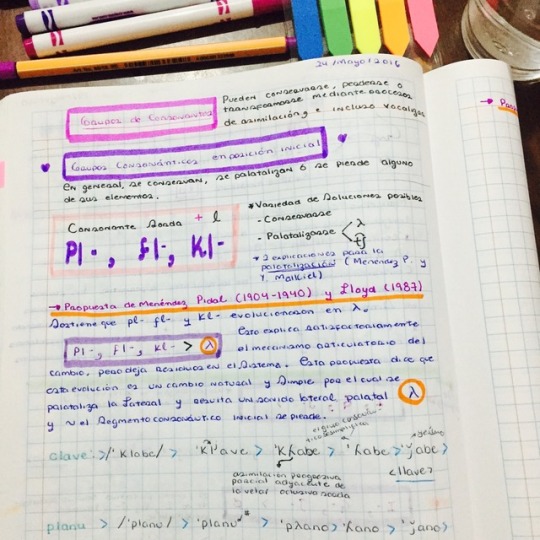 24/Mayo/2016
Grupos de Consonantes
Pueden conservarse, perderse o
transformarse mediante procesos
de asimilación, e incluso vocalizar
→ Prop
Grupos Consonánticos en posición inicial
En general, se conservan, se palatalizan ó se pierde alguno
de sus elementos.
Consonante Sorda + l
Pl-, fl-, Kl-
* Variedad de Soluciones posibles
- Conservarse
- Palatalizarse < ʎ
tʃ
+ 2 explicaciones para la
palatalización (Menéndez P. y
Y. Malkiel)
→ Propuesta de Menéndez Pidal (1904-1940) y Lloyd (1987)
Sostiene que pl- fl- y Kl- evolucionaron en ʎ.
Pl-, fl-, Kl- > ʎ
Esto explica satisfactoriamente
el mecanismo articulatorio del
cambio, pero deja residuos en el sistema. Esta propuesta dice que
esta evolución es un cambio natural y simple por el cual se
palataliza la lateral y resulta un sonido lateral palatal ʎ
y el segmento consonántico inicial se pierde.
clave > /'klabe/ > 'kl̯ave > 'kʎabe > 'ʎabe > 'ǰabe
<llave>
asimilación progresiva
parcial adyacente de
la velar oclusiva sorda
planu > /'planu/ > 'planu > 'pʎano > 'ʎano > 'ǰano